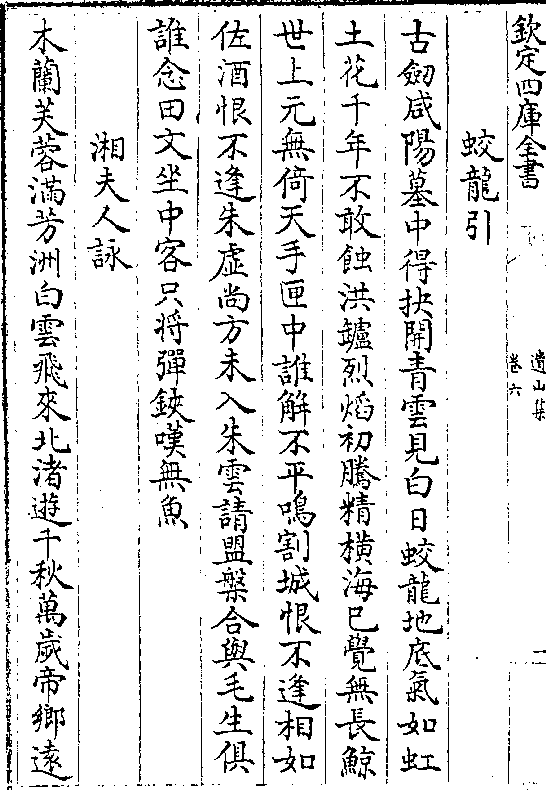 欽定四庫全書
遺山集
卷六
一
蛟龍引
古劒咸陽墓中得抉開青雲見白日蛟龍地底氣如虹
土花千年不敢蝕洪鑪烈熖初騰精横海已覺無長鯨
世上元無倚天手匣中誰解不平鳴割城恨不逢相如
佐酒恨不逢朱虚尚方未入朱雲請盟槃合與毛生俱
誰念田文坐中客只将彈鋏嘆無魚
湘夫人詠
木蘭芙蓉滿芳洲白雲飛來北渚遊千秋萬歲帝鄉遠